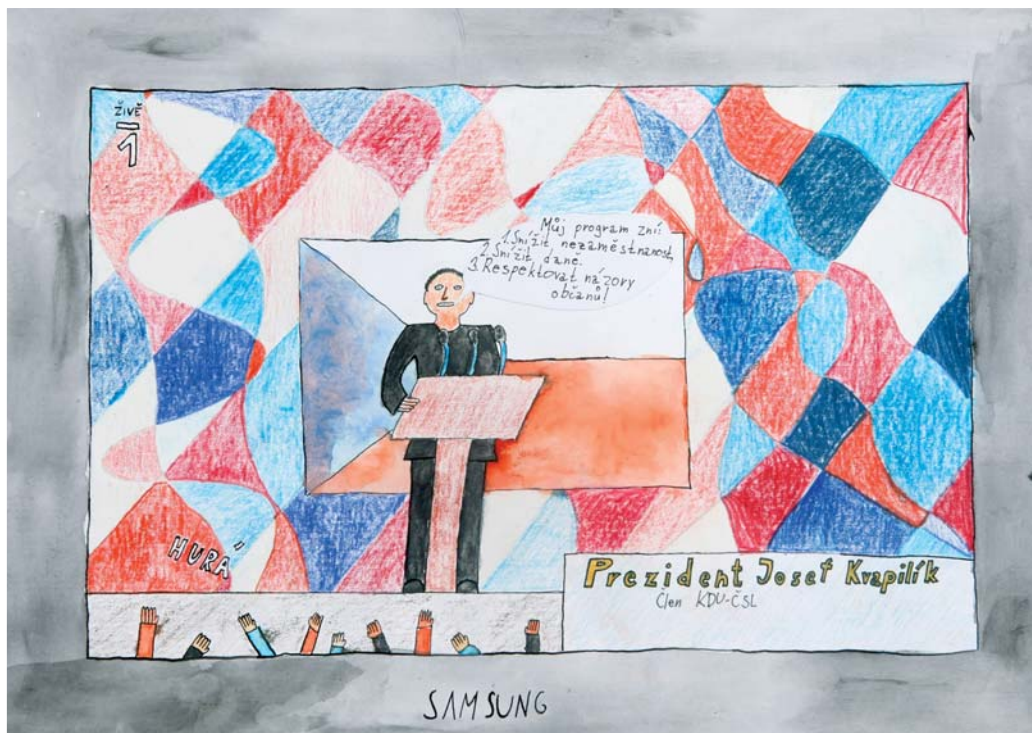 ŽIVĚ
1
Můj program zní:
1. Snížit nezaměstnanost,
2. Snížit daně.
3. Respektovat názory
občanů!
HURÁ
Prezident Josef Kvapilík
Člen KDU-ČSL
SAMSUNG